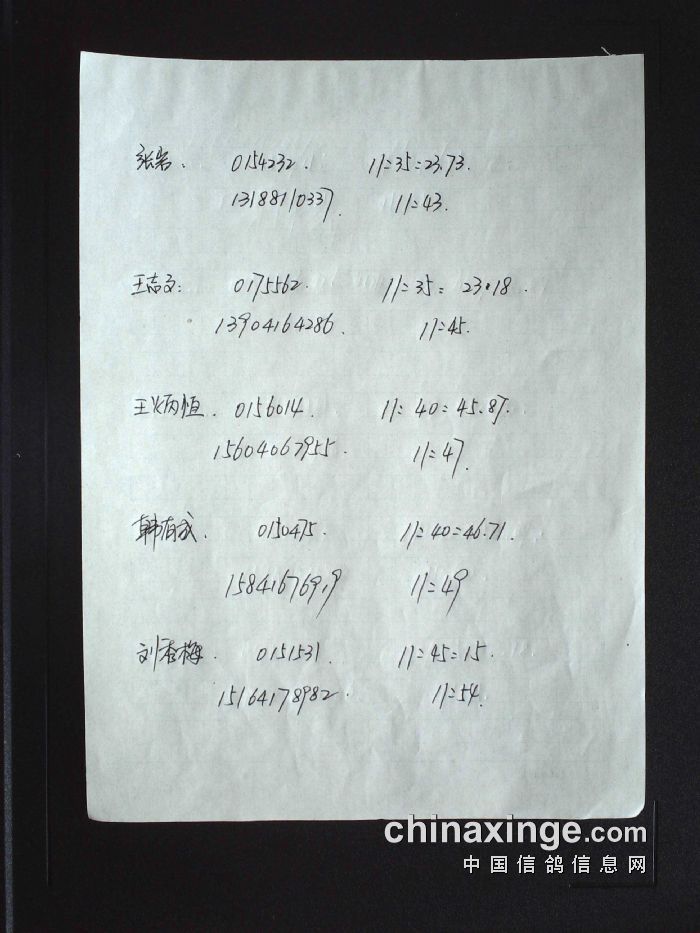 张岩: 0154232. 11=35=23.73.
13188110337. 11=43.
王志文: 0175562. 11=35= 23.18.
13904164286. 11=45.
王炳恒. 0156014. 11=40=45.87.
15604067955. 11=47.
韩有成. 0150475. 11=40=46.71.
15841676919 11=49
刘秀梅. 0151531. 11=45=15.
15164178982. 11=54.
chinaxinge.com
中国信鸽信息网